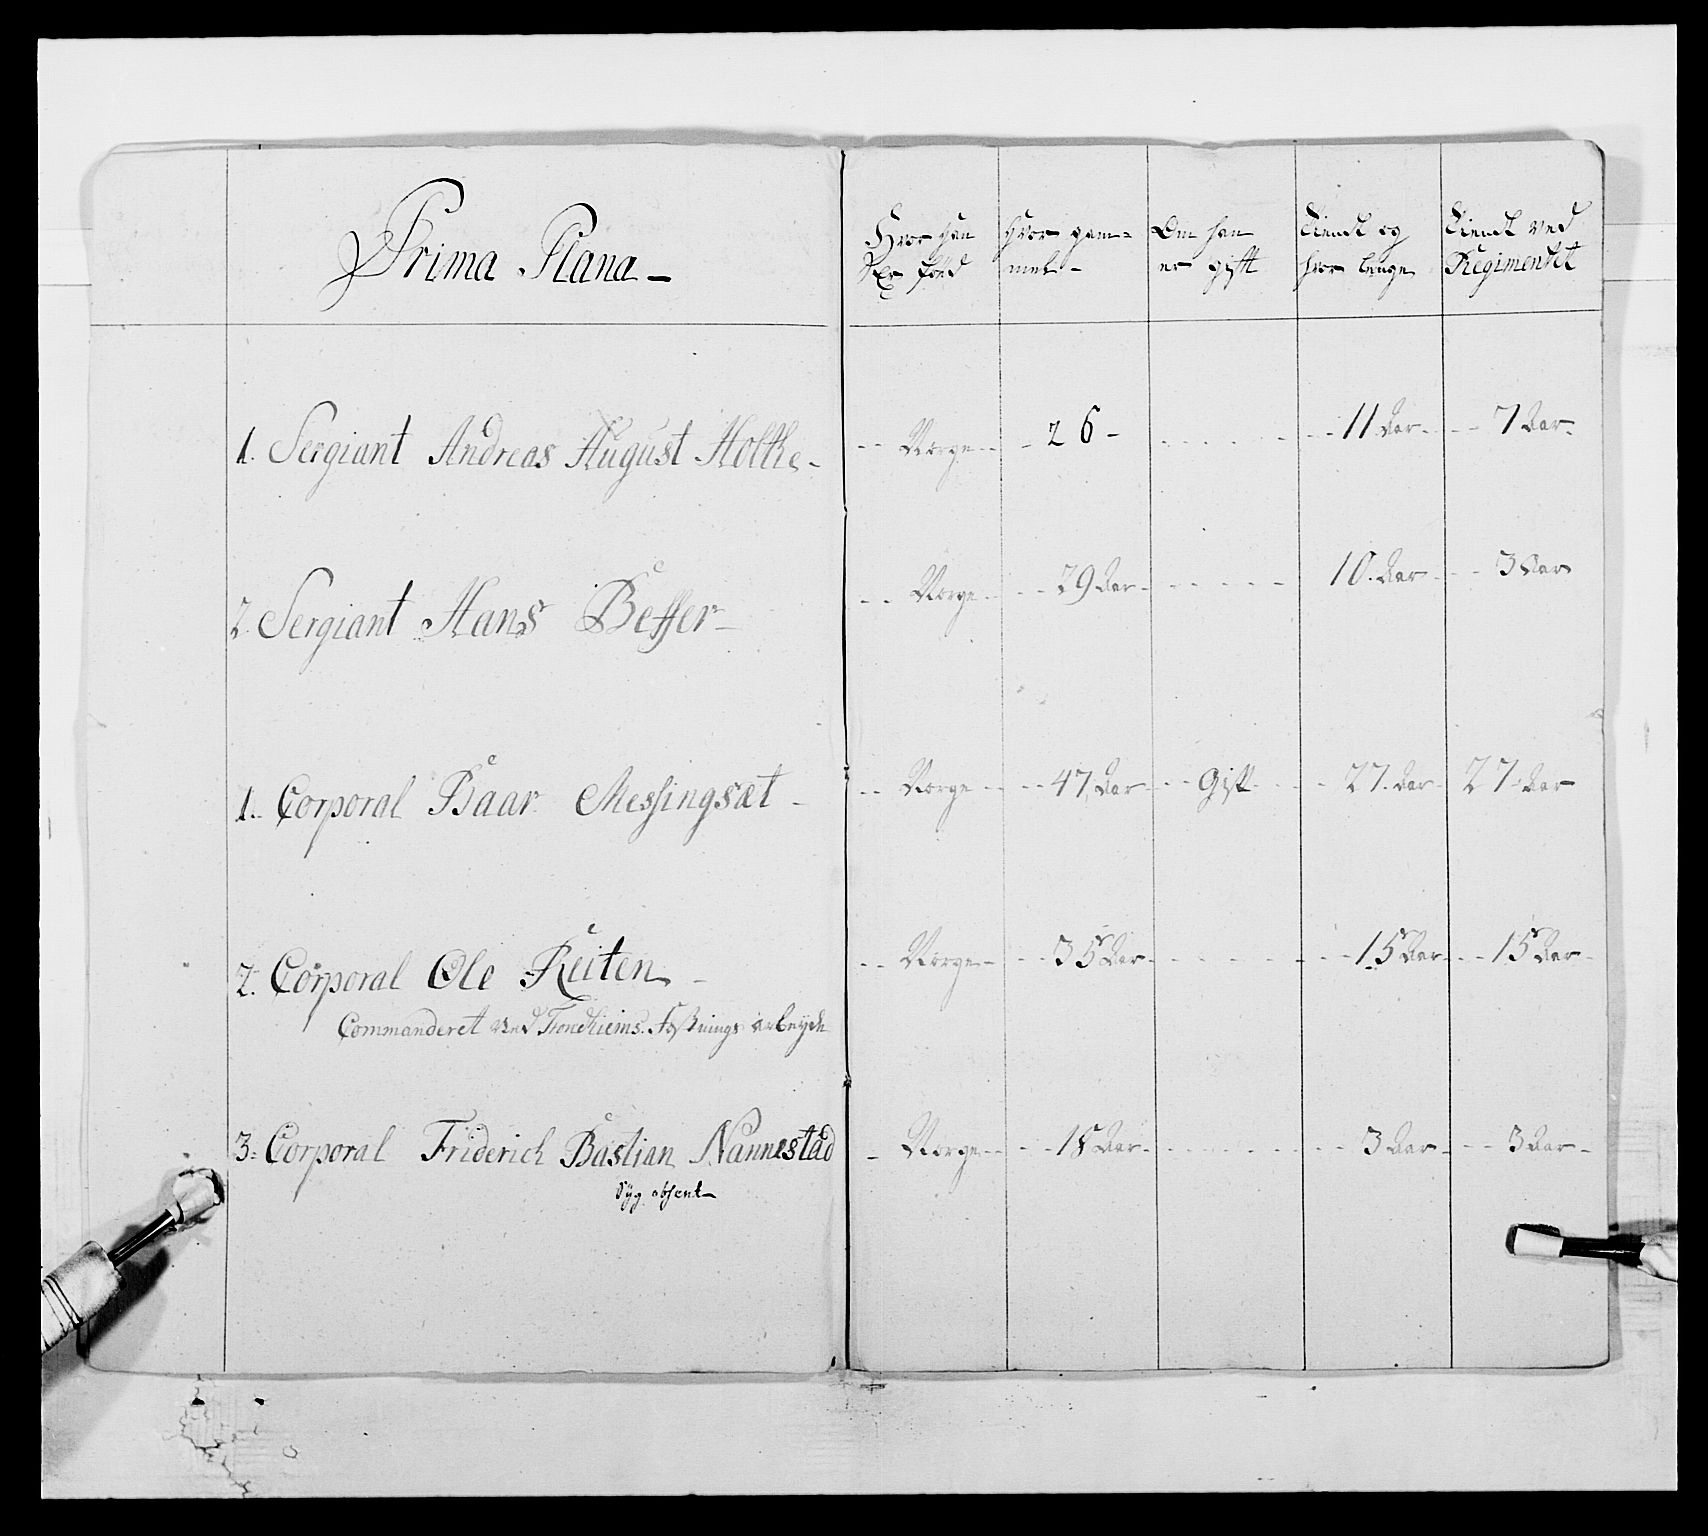 Prima Plana
Hvor han er føed
Hvor gammel
Om han er gift
Tient og hvor lenge
Tient ved Regimentet
1. Sergiant Andreas August Holtke - Norge - 26 - 11 Aar - 7 Aar
2. Sergiant Hans Besser - Norge - 29 Aar - 10 Aar - 3 Aar
1. Corporal Baar Messingsæt - Norge - 47 Aar - Gift - 27 Aar - 27 Aar
2. Corporal Ole Reiten - Norge - 35 Aar - 15 Aar - 15 Aar
Commanderet ved Trondhiems Fæstnings arbeyde
3. Corporal Friderich Bastian Nannestad - Norge - 18 Aar - 3 Aar - 3 Aar
Syg absent